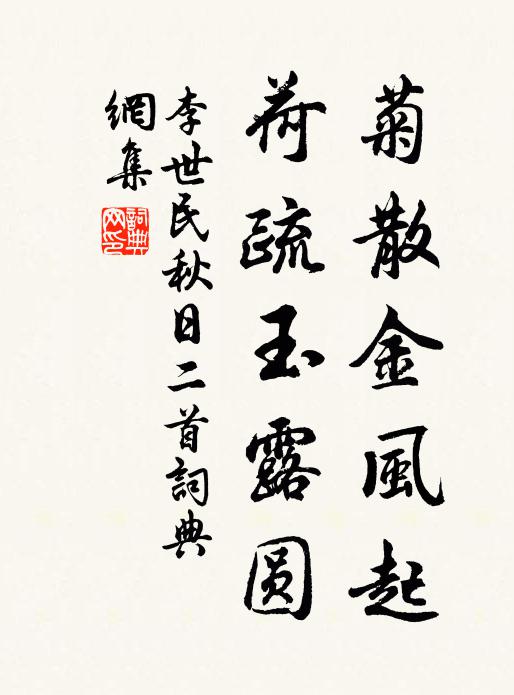 菊散金風起
荷疏玉露圆
李世民秋日二首詞典
網集
詞典网印